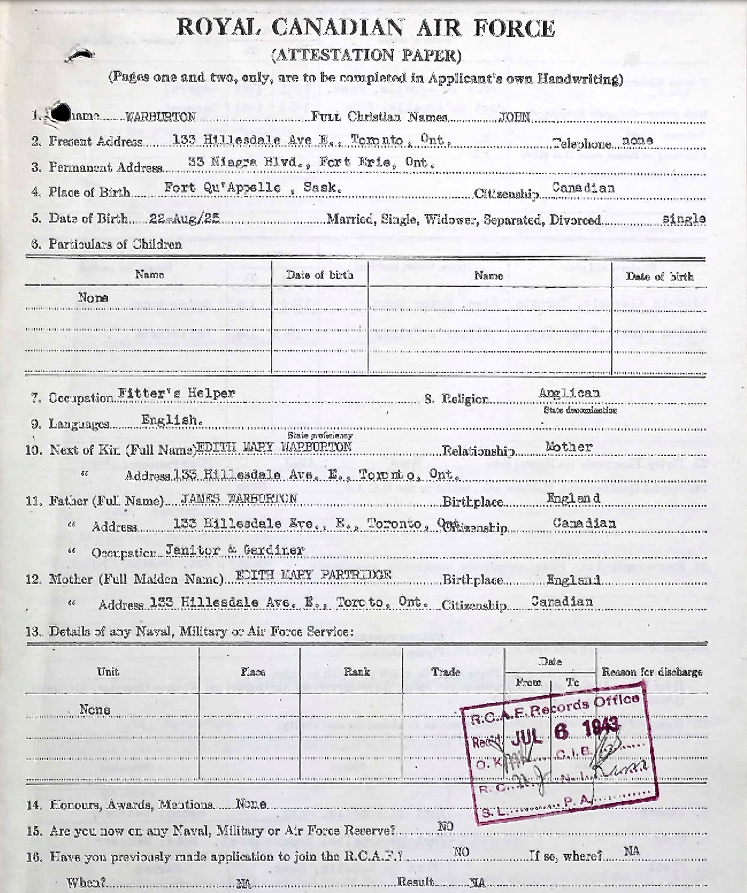 ROYAL CANADIAN AIR FORCE
(ATTESTATION PAPER)
(Pages one and two, only, are to be completed in Applicant's own Handwriting)
1. name WARBURTON Full Christian Names JOHN
2. Present Address 133 Hillesdale Ave E., Toronto, Ont. Telephone none
3. Permanent Address 33 Niagra Blvd., Fort Erie, Ont.
4. Place of Birth Fort Qu'Appelle , Sask. Citizenship Canadian
5. Date of Birth 22-Aug/25 Married, Single, Widower, Separated, Divorced single
6. Particulars of Children
Name Date of birth Name Date of birth
None
7. Occupation Fitter's Helper 8. Religion Anglican
State denomination
9. Languages English.
State proficiency
10. Next of Kin (Full Name) EDITH MARY WARBURTON Relationship Mother
" Address 133 Hillesdale Ave. E., Toronto, Ont.
11. Father (Full Name) JAMES WARBURTON Birthplace England
" Address 133 Hillesdale Ave., E., Toronto, Ont. Citizenship Canadian
" Occupation Janitor & Gardiner
12. Mother (Full Maiden Name) EDITH MARY PARTRIDGE Birthplace England
" Address 133 Hillesdale Ave. E., Toronto, Ont. Citizenship Canadian
13. Details of any Naval, Military or Air Force Service:
Unit Place Rank Trade Date Reason for discharge
From To
None
R.C.A.F. Records Office
Rec'd JUL 6 1943
O.K. C.I.B.
R.C. N.I.
S.L. P.A.
14. Honours, Awards, Mentions None
15. Are you now on any Naval, Military or Air Force Reserve? NO
16. Have you previously made application to join the R.C.A.F.? NO If so, where? NA
When? NA Result NA